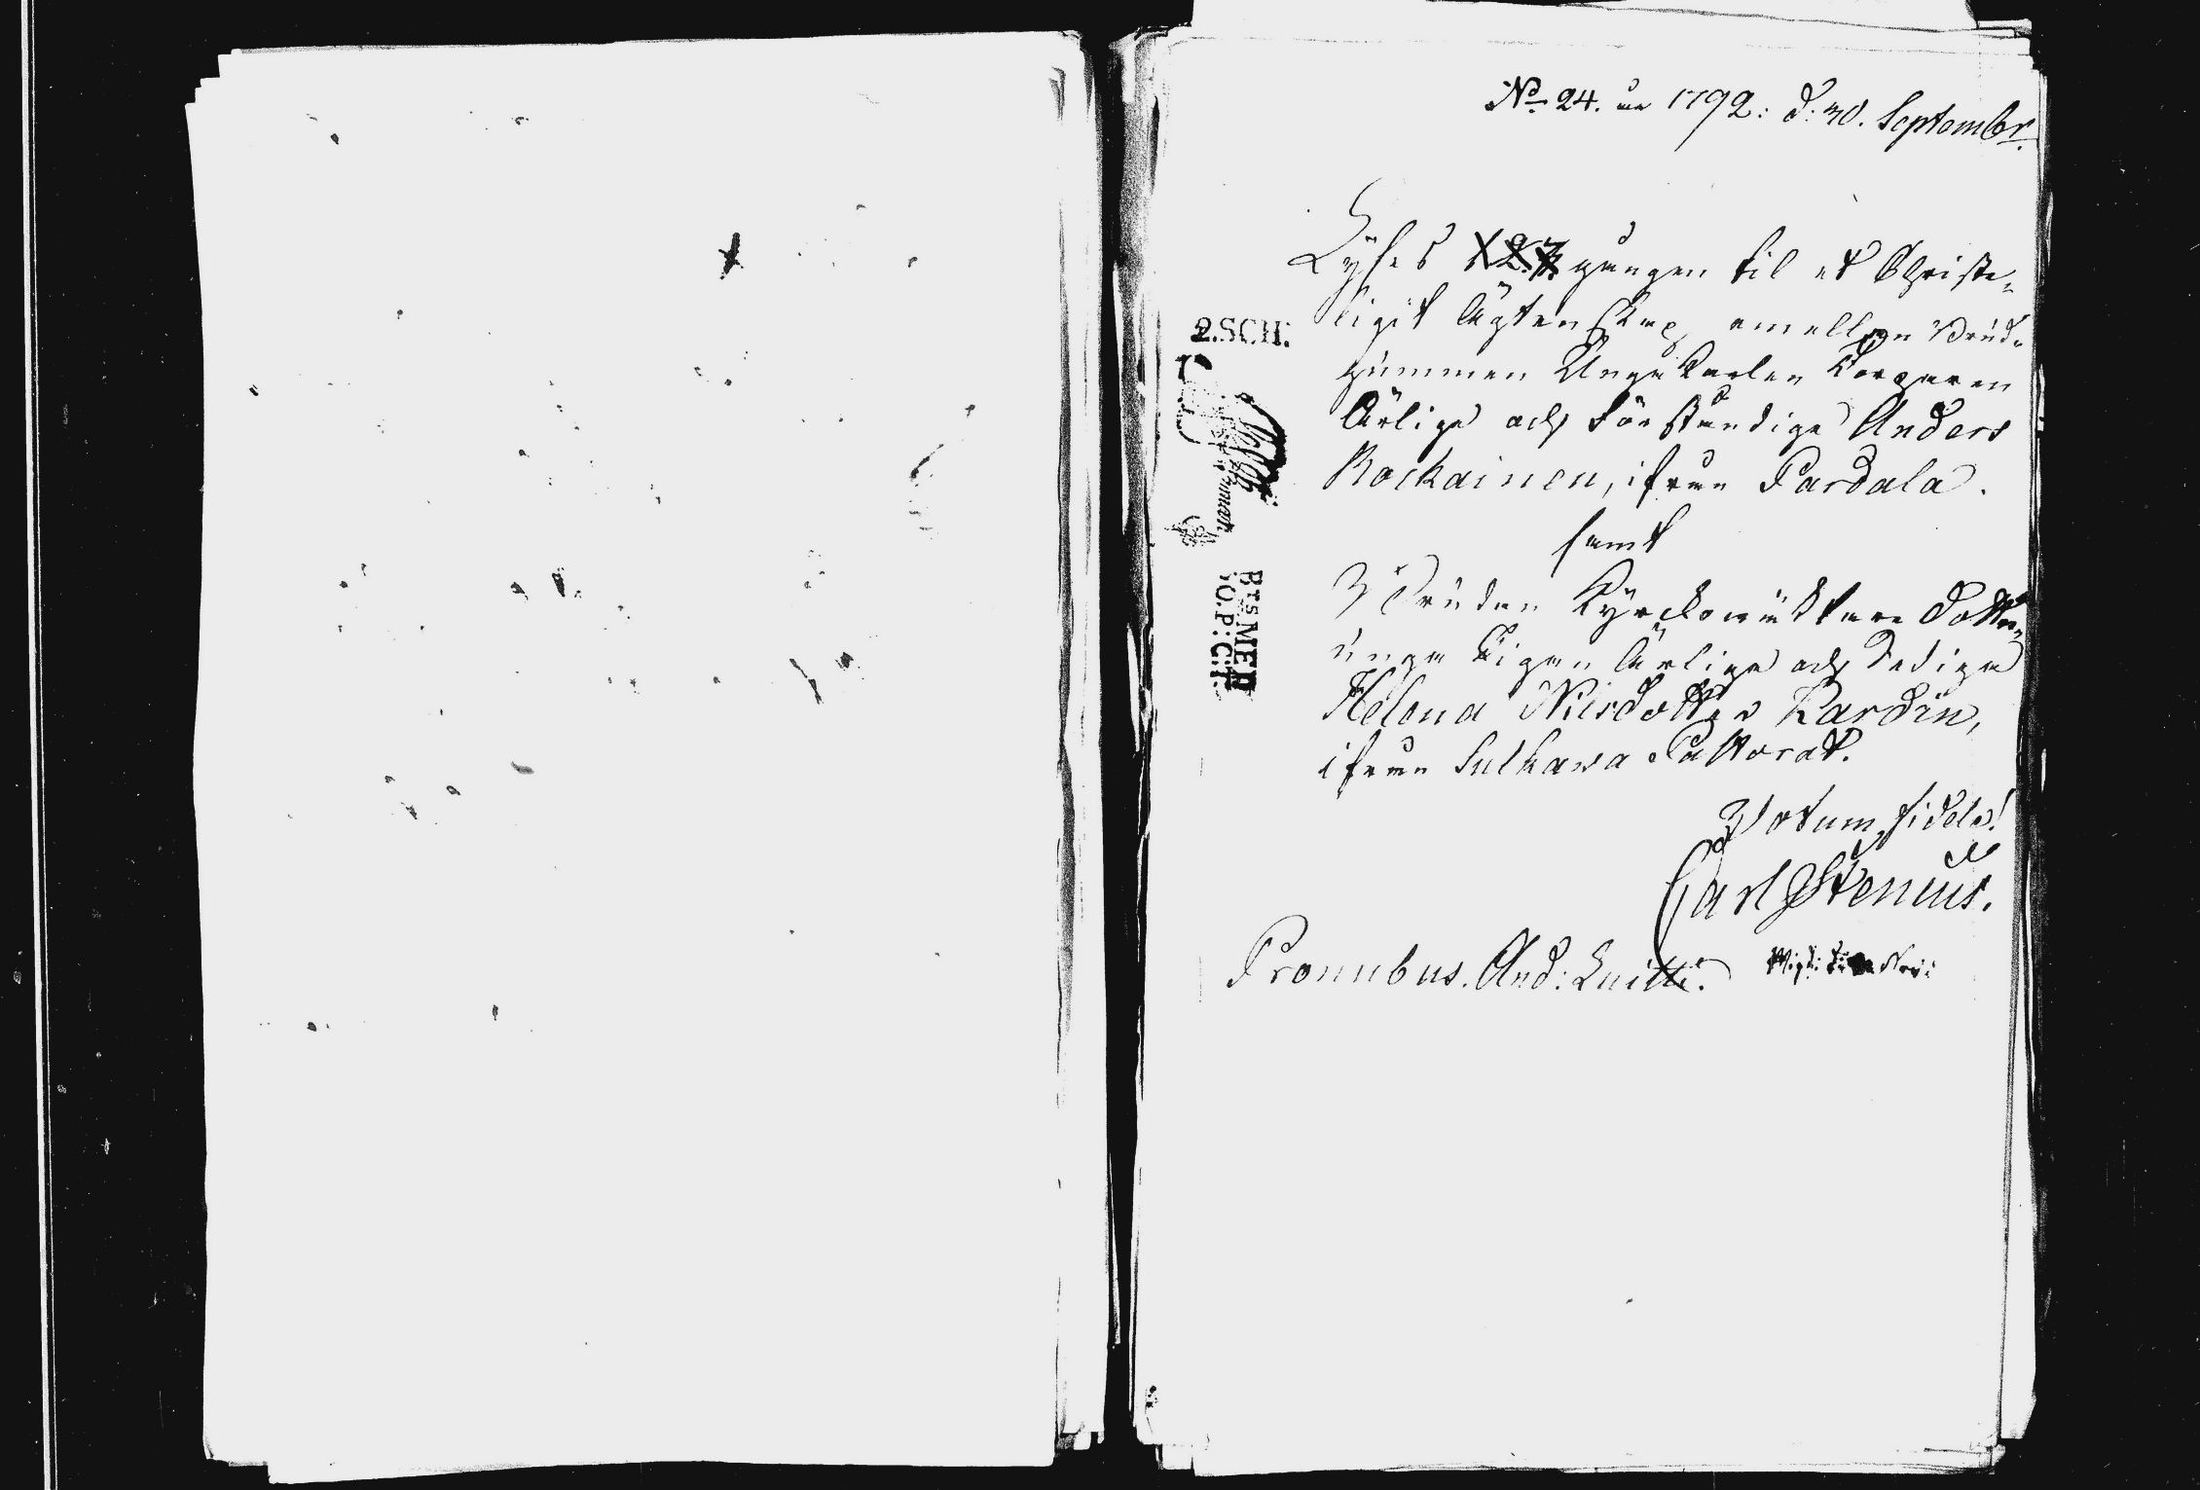 No 24. 1792: d: 30. Septembr.
Lyses 1. 2. 3. gången til et Christe-
ligit Ägtenskap emellan Brud-
gummen Unga Karlen Torparen
Ärlige och Förståndige Anders
Rockainen, ifrån Pardala.
samt
Bruden Kyrckowäktare Dotter
unga Pigan Ärliga och Sediga
Helena Nilsdotter Kardin,
ifrån Sulkawa Pastorat.
Votum fidele!
Carl Stenius.
Pronubus. And: Luitti.
2.SCH: